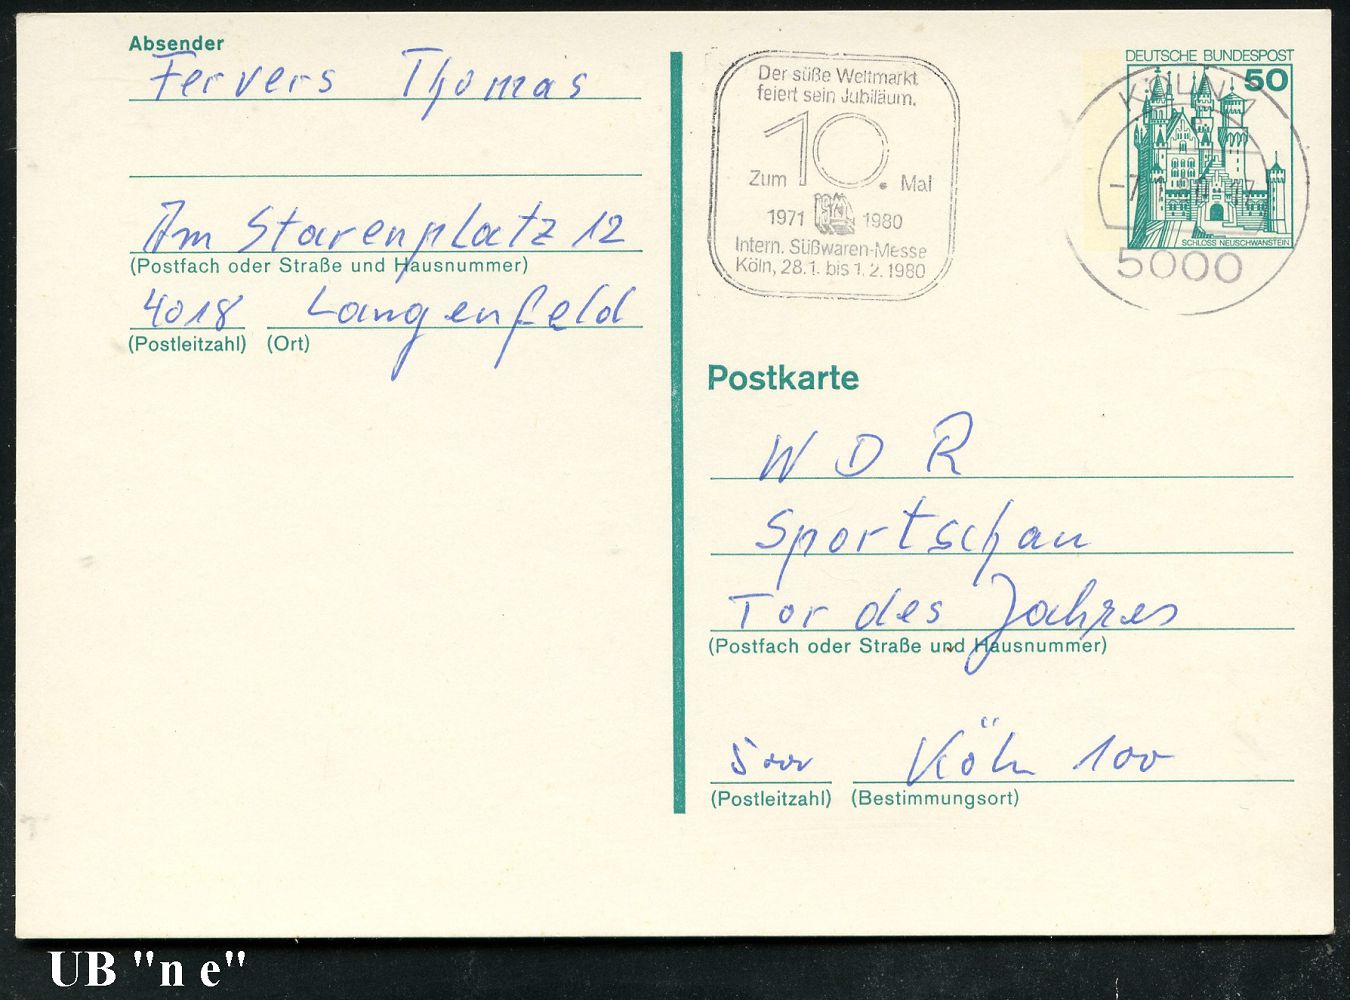 Absender
Fervers Thomas
Am Starenplatz 12
(Postfach oder Straße und Hausnummer)
4018 Langenfeld
(Postleitzahl) (Ort)
Der süße Weltmarkt
feiert sein Jubiläum.
Zum 10. Mal
1971 1980
Intern. Süßwaren-Messe
Köln, 28.1. bis 1.2.1980
DEUTSCHE BUNDESPOST
50
SCHLOSS NEUSCHWANSTEIN
KÖLN
5000
Postkarte
WDR
Sportschau
Tor des Jahres
(Postfach oder Straße und Hausnummer)
5000 Köln 100
(Postleitzahl) (Bestimmungsort)
UB "n e"